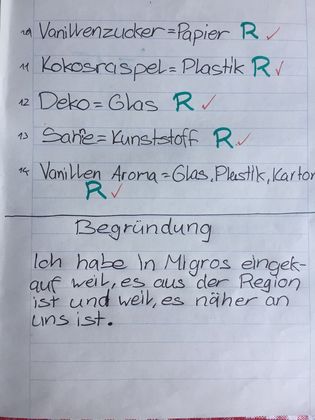 10 Vanillenzucker=Papier R ✓
11 Kokosraspel=Plastik R ✓
12 Deko=Glas R ✓
13 Sanfe=Kunststoff R ✓
14 Vanillen Aroma=Glas, Plastik, Karton
R ✓
Begründung
Ich habe in Migros eingek-
auf weil, es aus der Region
ist und weil, es näher an
uns ist.